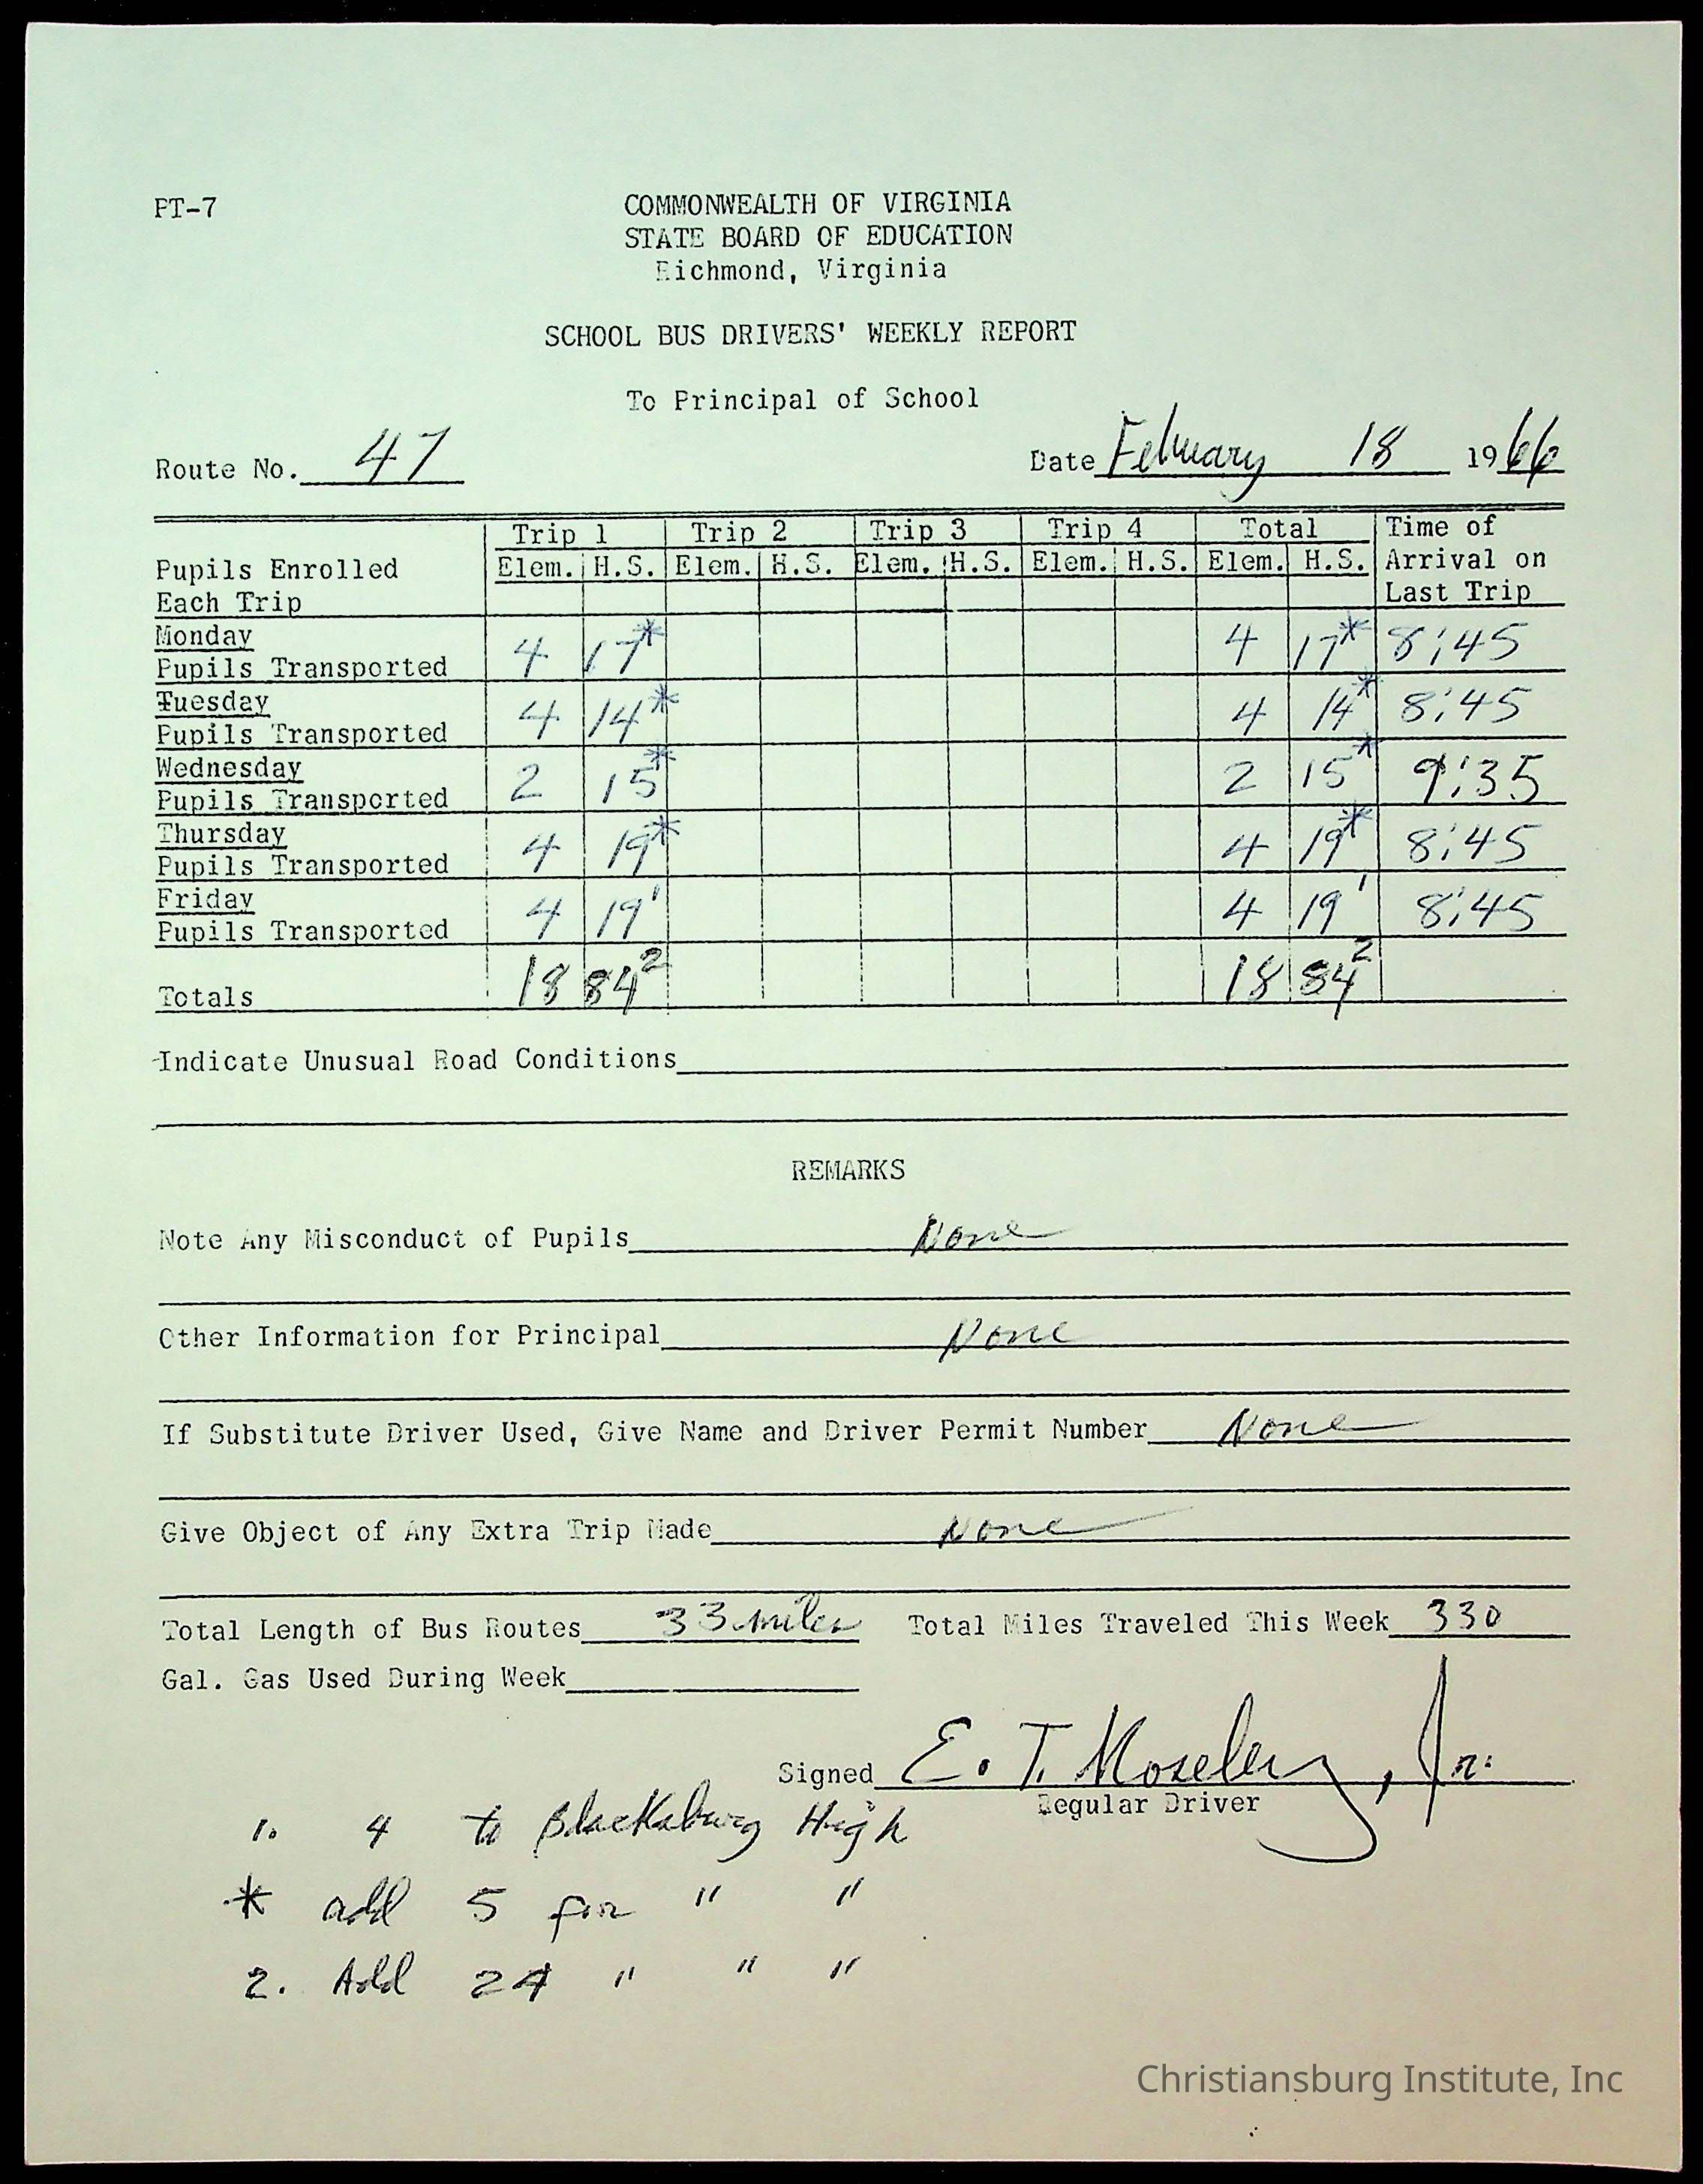 PT-7
COMMONWEALTH OF VIRGINIA
STATE BOARD OF EDUCATION
Richmond, Virginia
SCHOOL BUS DRIVERS' WEEKLY REPORT
To Principal of School
Route No. 47 Date February 18 1966
Trip 1 Trip 2 Trip 3 Trip 4 Total Time of
Pupils Enrolled Elem. H.S. Elem. H.S. Elem. H.S. Elem. H.S. Elem. H.S. Arrival on
Each Trip Last Trip
Monday
Pupils Transported 4 17* 4 17* 8:45
Tuesday
Pupils Transported 4 14* 4 14* 8:45
Wednesday
Pupils Transported 2 15* 2 15* 9:35
Thursday
Pupils Transported 4 19* 4 19* 8:45
Friday
Pupils Transported 4 19¹ 4 19¹ 8:45
Totals 18 84² 18 84²
Indicate Unusual Road Conditions
REMARKS
Note Any Misconduct of Pupils None
Other Information for Principal None
If Substitute Driver Used, Give Name and Driver Permit Number None
Give Object of Any Extra Trip Made None
Total Length of Bus Routes 33 miles Total Miles Traveled This Week 330
Gal. Gas Used During Week
Signed E. T. Moseley, Jr.
Regular Driver
1. 4 to Blacksburg High
* add 5 for " "
2. Add 24 " " "
Christiansburg Institute, Inc